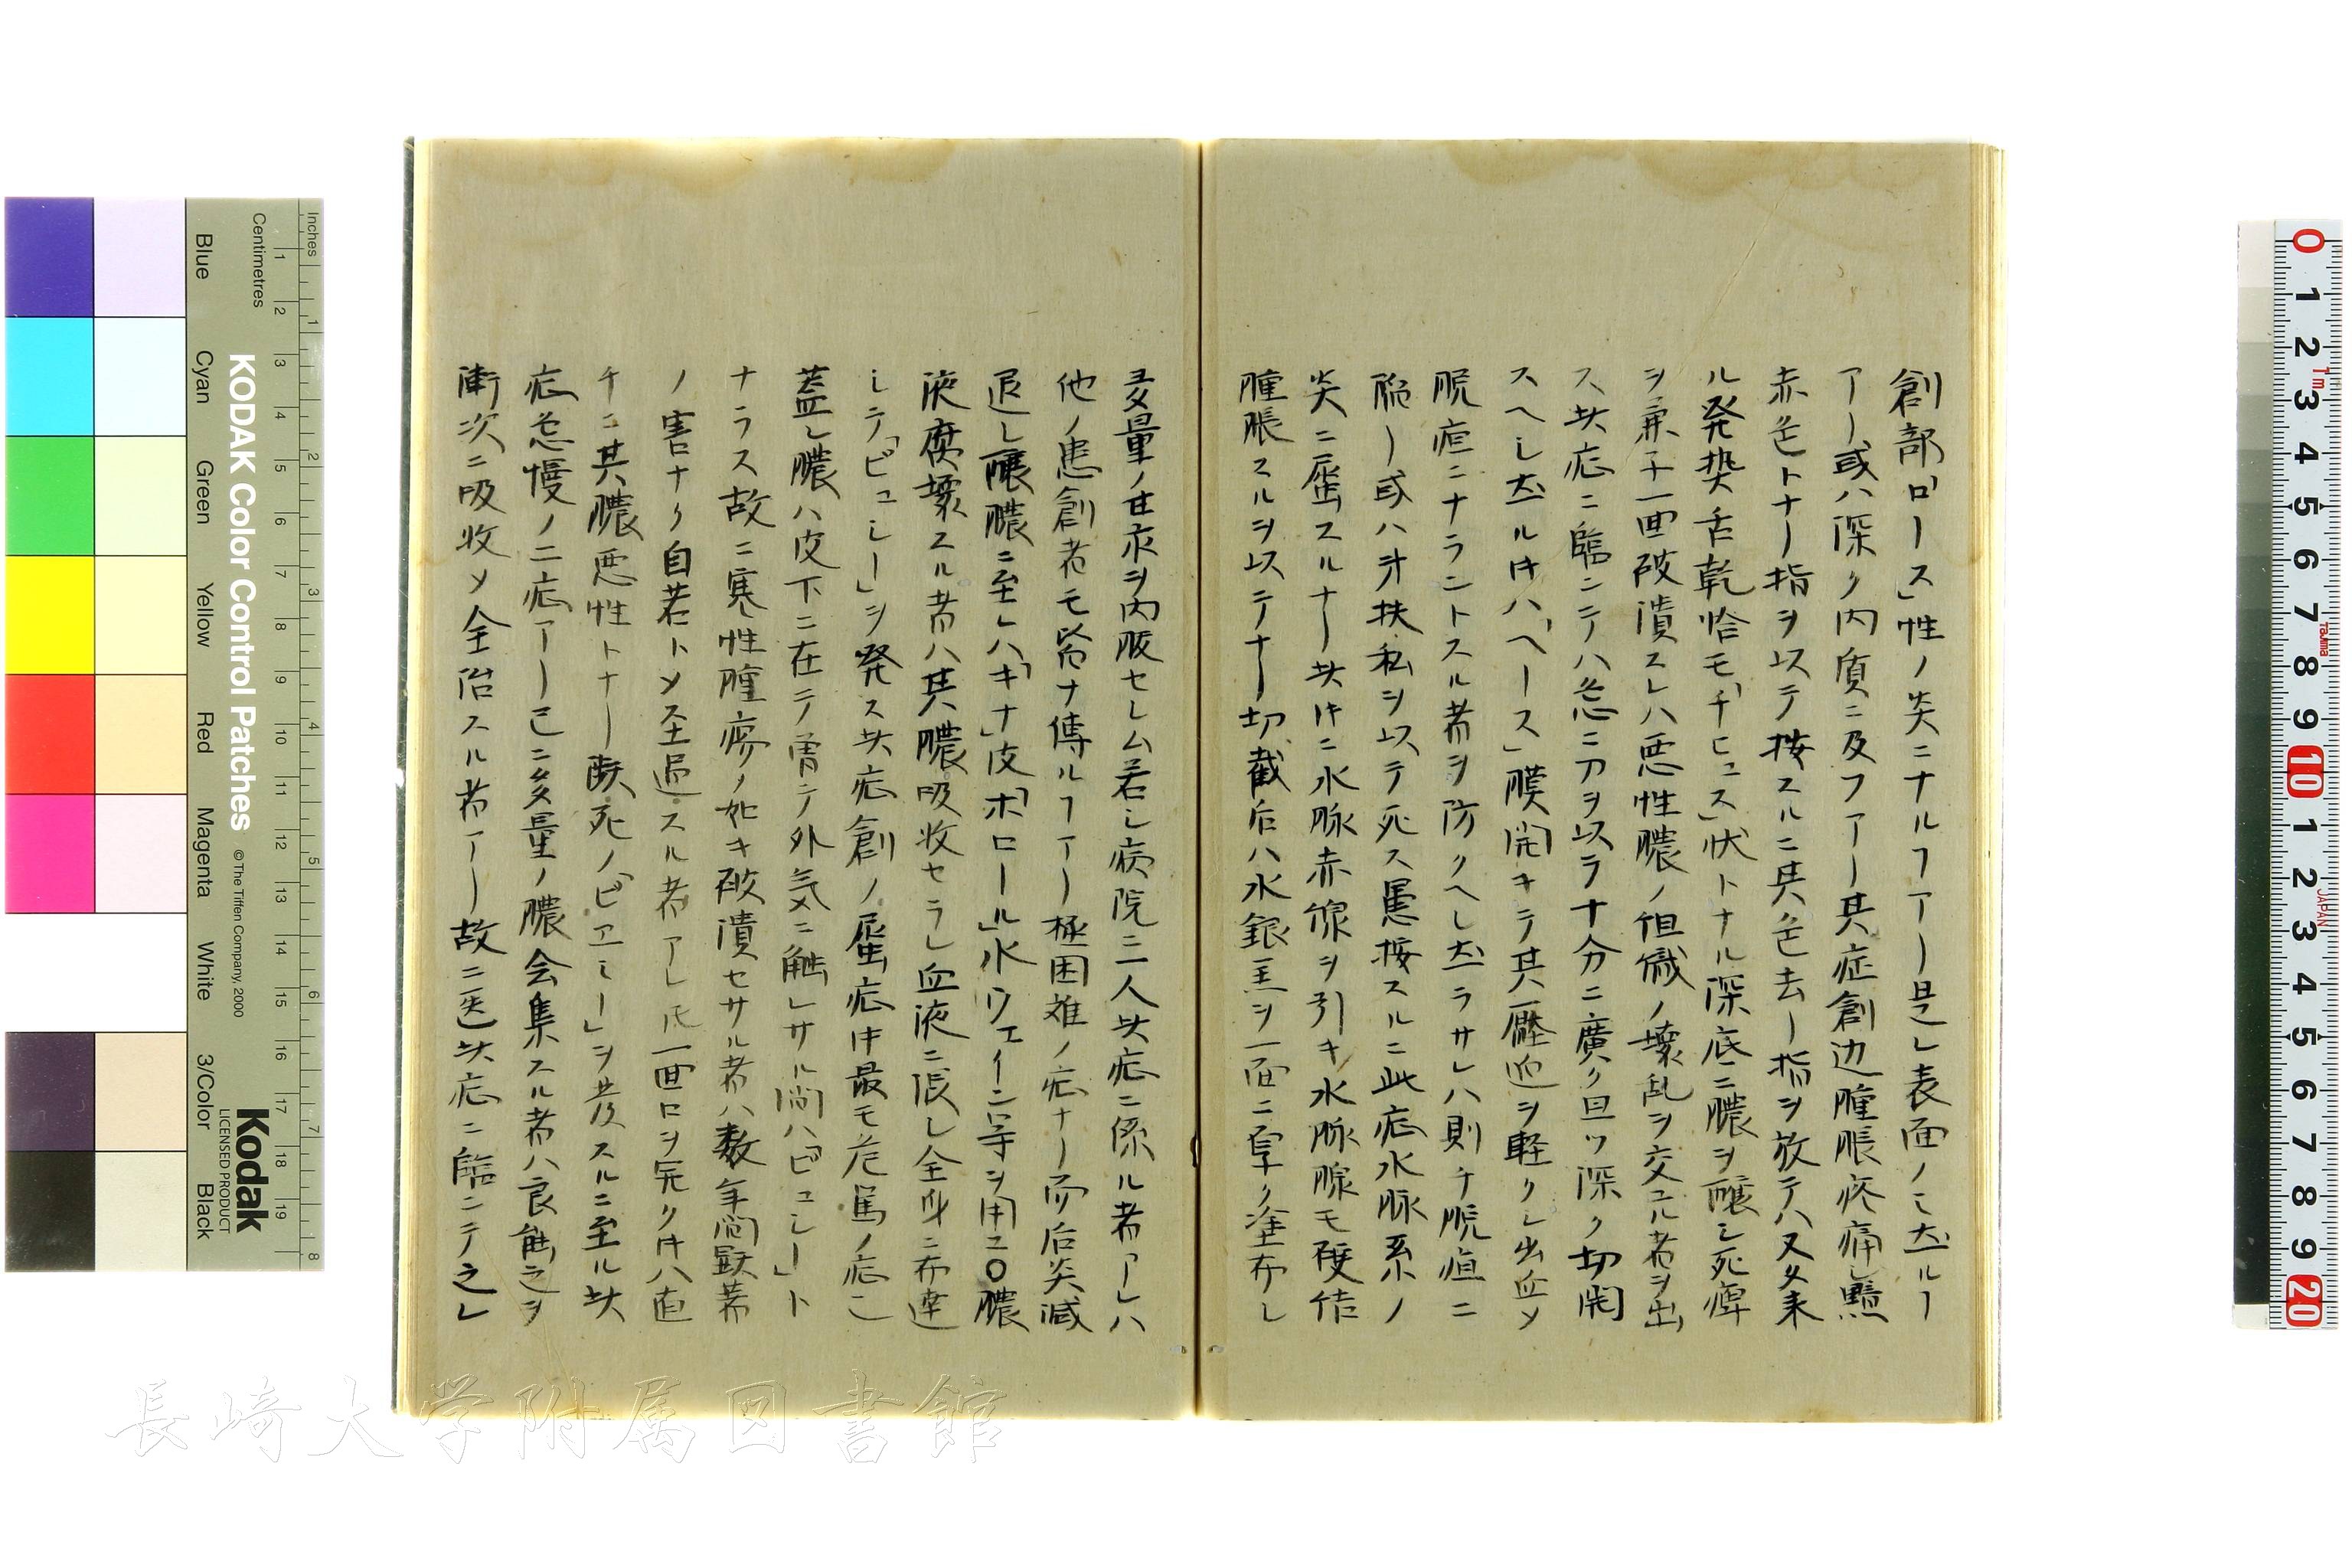 創部「ロース」性ノ炎ニナルヿアー是レ表面ノミ在ルヿ
アー或ハ深ク内質ニ及フアー其症創辺腫脹疼痛シ
赤色トナー指ヲ以テ按スルニ其色去ー指ヲ放テハ又タ来
ル発熱舌乾恰モ「チヒュス」状トナル深底ニ膿ヲ醸シ死
ヲ兼子一囬破潰スレハ悪性膿ノ但織ノ壊乱ヲ交ユル者ヲ出
ス此症ニ臨ンテハ急ニ刀ヲ以ラ十分ニ廣ク且ツ深ク切開
スヘシ在ル井ハ「ヘース」膜開キテ其壓迫ヲ軽クシ出血メ
脱疽ニナラントスル者ヲ防クヘシ在ラサレハ則チ脱疽ニ
陥ー或ハ汁扶私ヲ以テ死ス愚按スルニ此症水脉系ノ
炎ニ属スルナー此井ニ水脉赤線ヲ引キ水脉腺モ硬結
腫脹スルヲ以テナー切截后ハ水銀羔ヲ一面ニ厚ク塗布シ
多量ノ甘汞ヲ内服セシム若シ病院ニ一人此症ニ係ル者アレハ
他ノ患創者モ皆ナ傳ルヿアー極困難ノ症ナー而后炎減
退シ醸膿ニ至レハ「キナ」皮「ホロール」水「ウェイン」等ヲ用ユ〇膿
液腐壊スル者ハ其膿吸收セラレ血液ニ混シ全身ニ布達
シテ「ピュミー」ヲ発ス此症創ノ属症中最モ危篤ノ症也
蓋シ膿ハ皮下ニ在テ曽テ外気ニ触レサル間ハ「ピュミー」ト
ナラス故ニ寒性腫瘍ノ如キ破潰セサル者ハ数年間顕著
ノ害ナク自若トメ経過スル者アレ𪜈一囬口ヲ開ク井ハ直
チニ其膿悪性トナー厥死ノ「ピエミー」ヲ発スルニ至ル此
症急慢ノ二症アー已ニ多量ノ膿会集スル者ハ良触之ヲ
漸次ニ吸收メ全治スル者アー故ニ医此症ニ臨ンテ之レ
長崎大学附属図書館
KODAK Color Control Patches
©The Tiffen Company, 2000
Kodak
LICENSED PRODUCT
Inches
Centimetres
Blue
Cyan
Green
Yellow
Red
Magenta
White
3/Color
Black